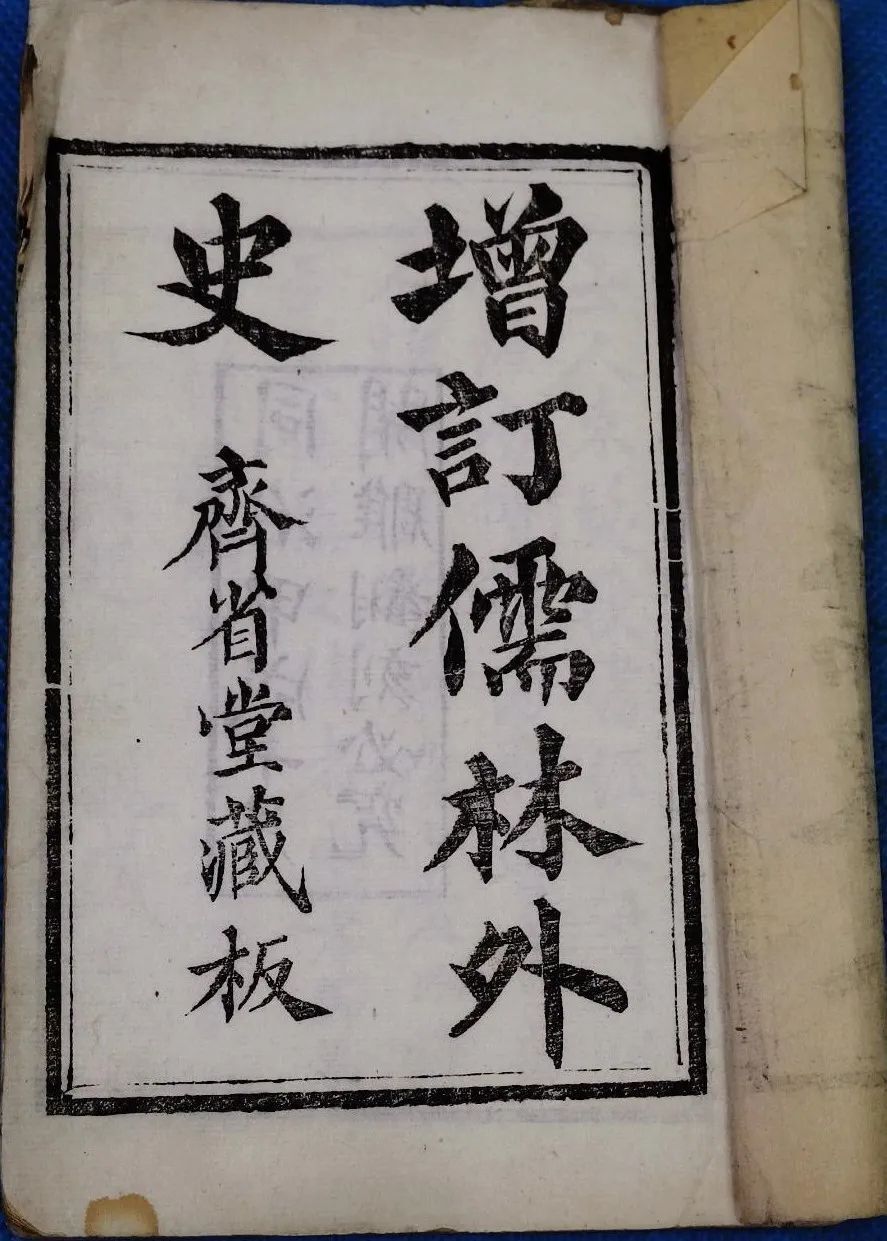 增訂儒林外
史
齊省堂藏板